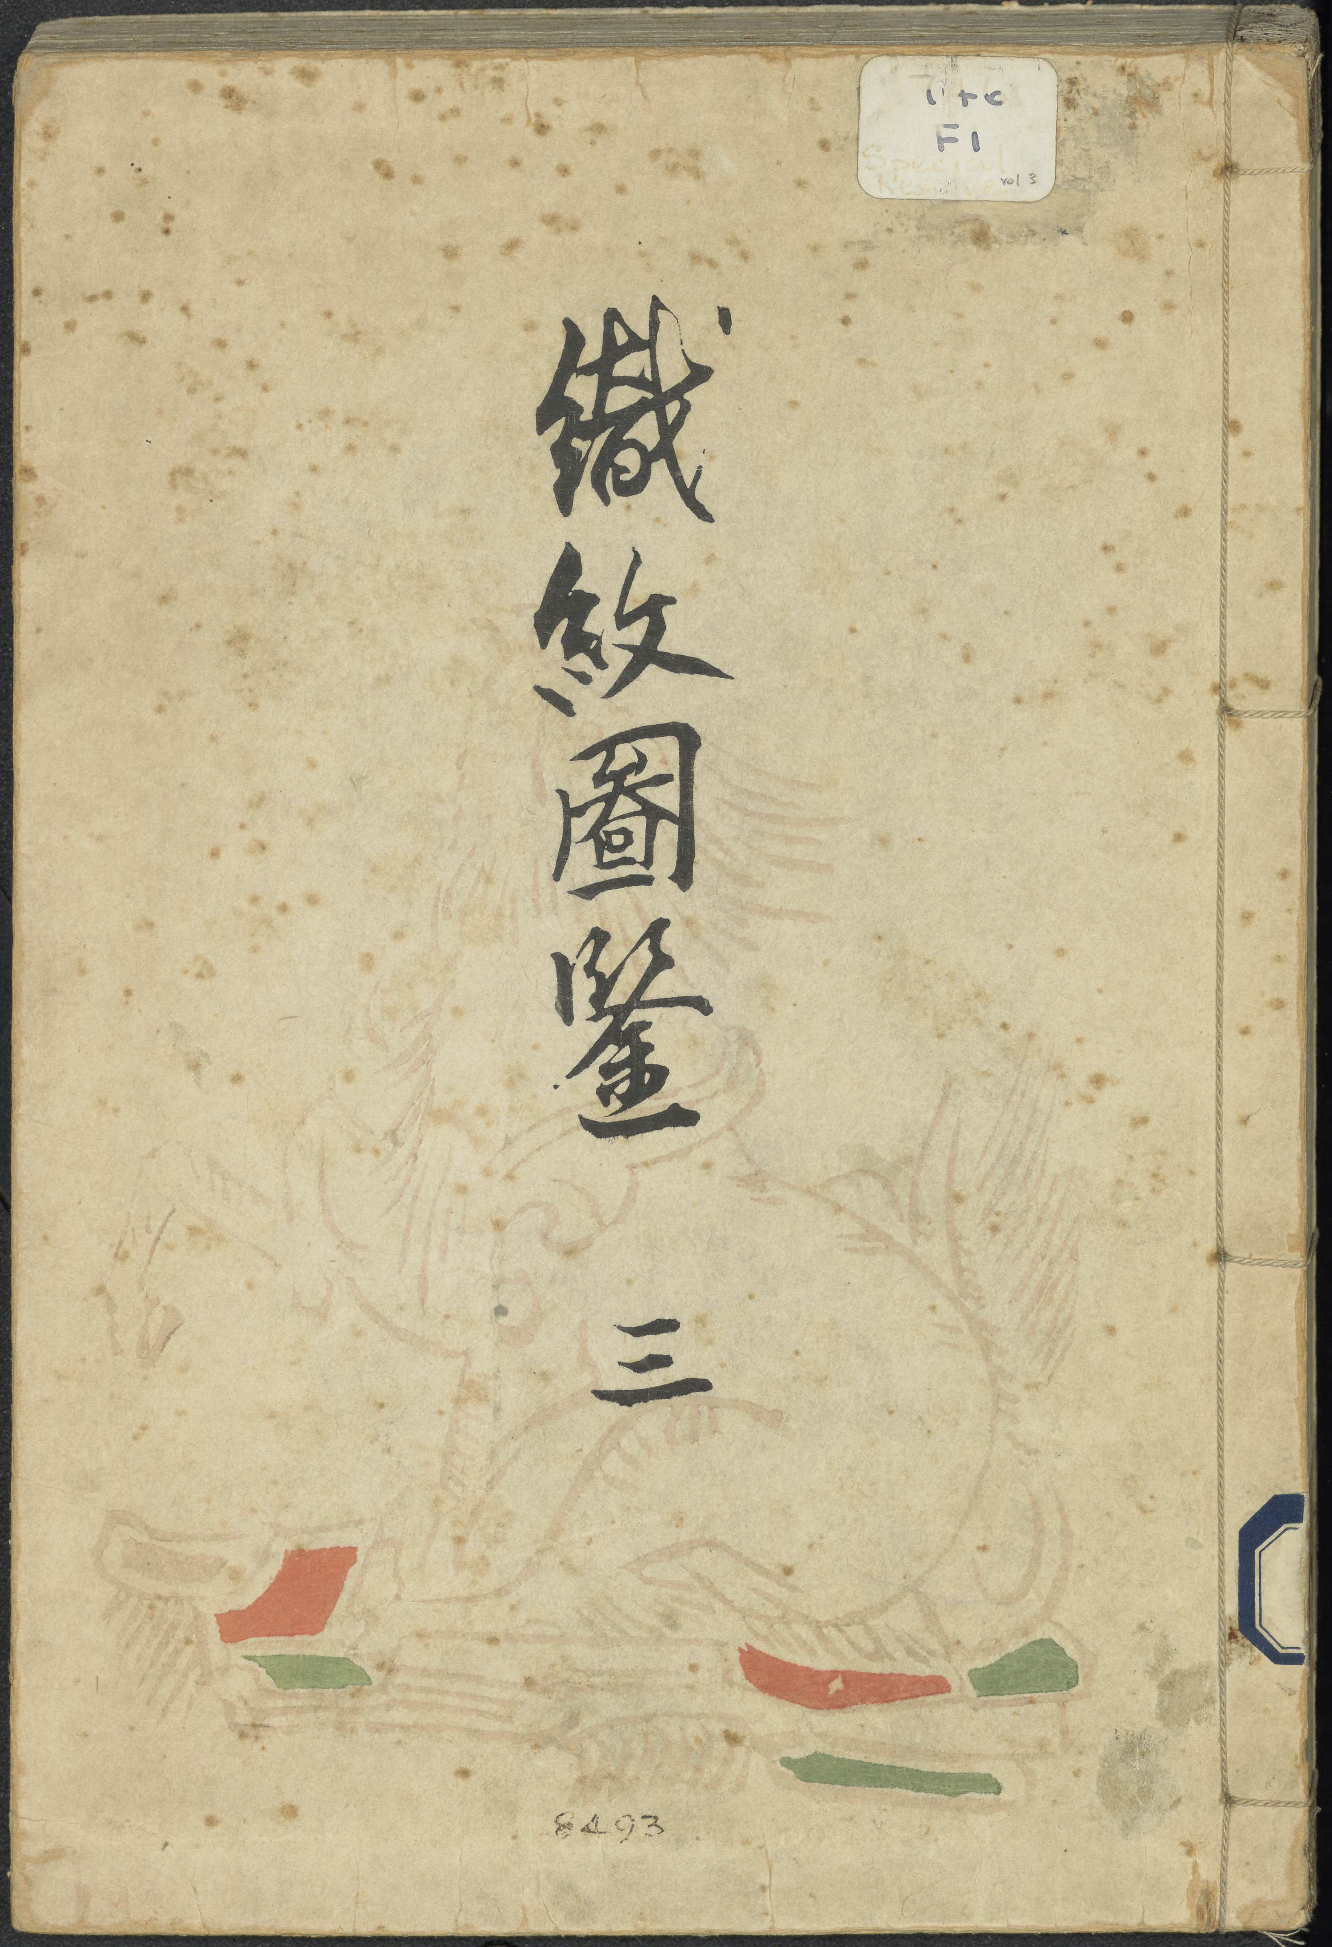 織紋圖鑒 三
F1
Special
Reserve
vol 3
8493